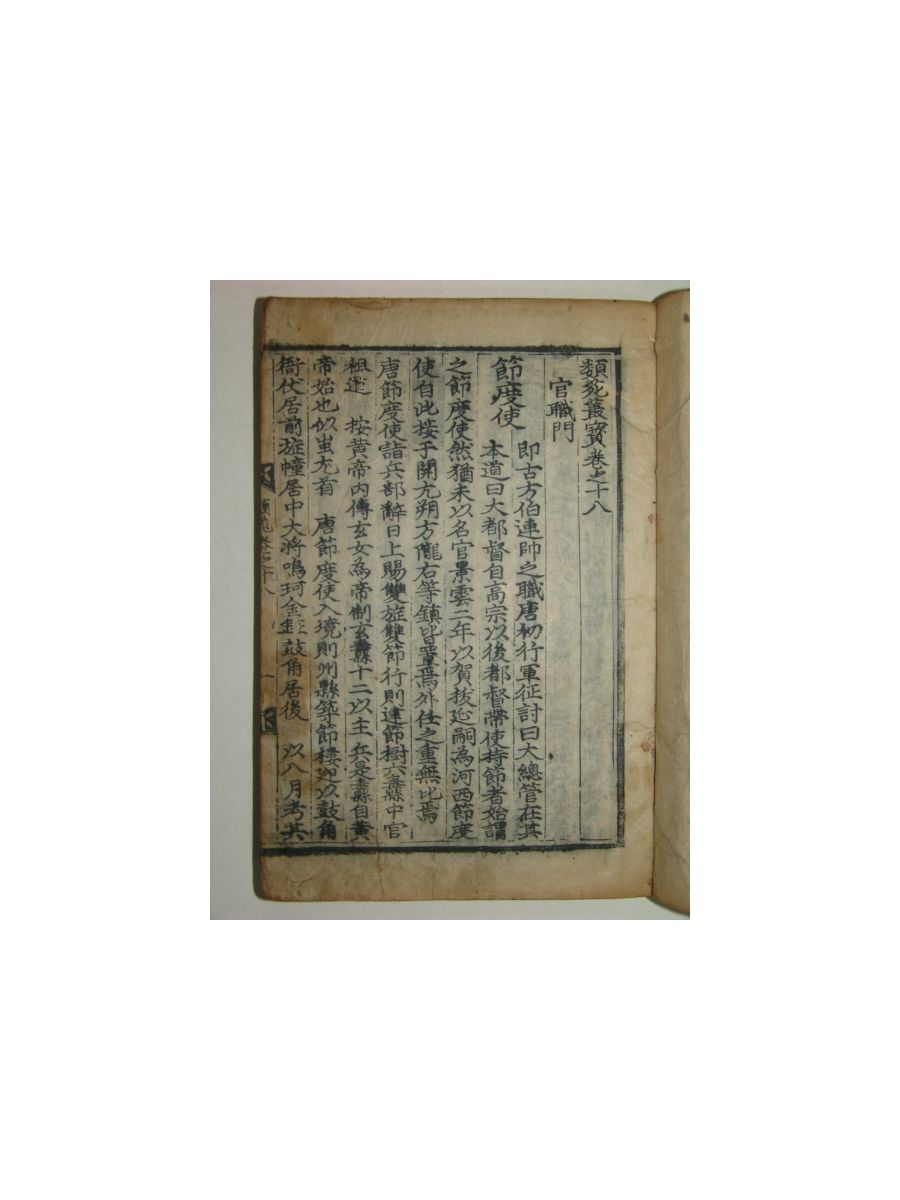 類苑叢寶卷之十八
官職門
節度使
即古方伯連帥之職唐初行軍征討曰大總管在其
本道曰大都督自高宗以後都督帶使持節者始謂
之節度使然猶未以名官景雲二年以賀拔延嗣為河西節度
使自此接乎開元朔方隴右等鎮皆置焉外任之重無比焉
唐節度使詣兵部辭日上賜雙旌雙節行則建節樹六纛中官
祖送 按黄帝内傳玄女為帝制玄纛十二以主兵是纛自黄
帝始也似蚩尤首 唐節度使入境則州縣築節樓迎以鼓角
衙仗居前旌幢居中大將鳴珂金鉦鼓角居後 以八月考其
類苑卷之十八 一